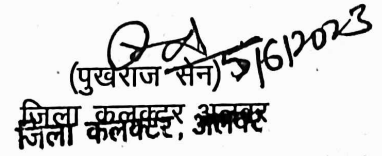 5/6/2023
(पुखराज सेन)
जिला कलक्टर, अलवर